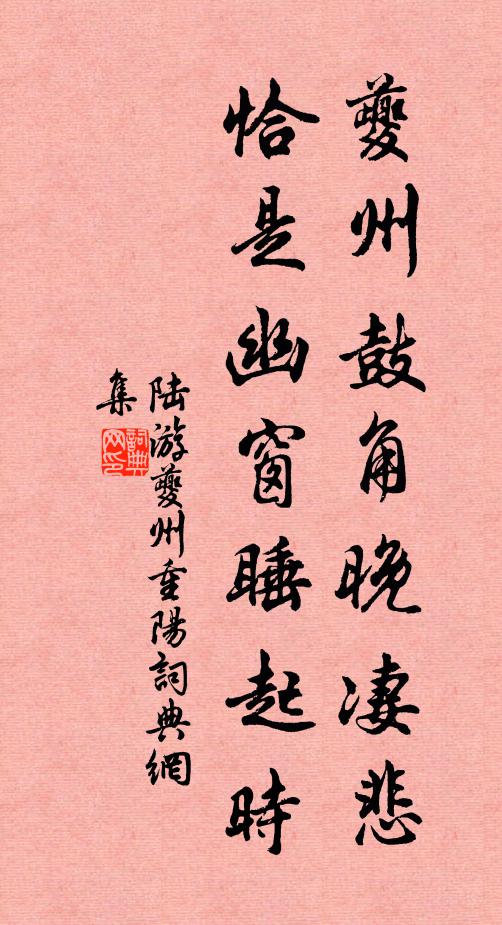 夔州鼓角晚凄悲
恰是幽窗睡起時
陆游夔州重陽詞典網
集
詞典网印